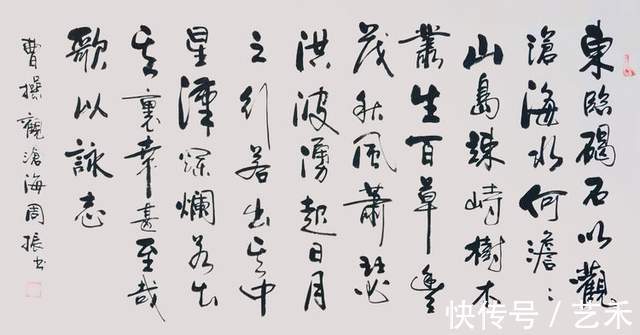 東臨碣石以觀
滄海水何澹〻
山島竦峙樹木
叢生百草豐
茂秋風蕭瑟
洪波湧起日月
之行若出其中
星漢燦爛若出
其裏幸甚至哉
歌以詠志
曹操觀滄海周振书
快传号／艺禾